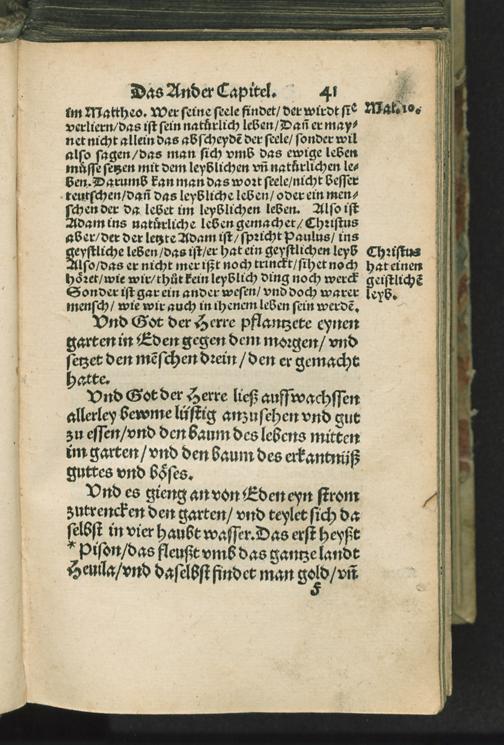 Das Ander Capitel. 41
im Mattheo. Wer seine seele findet/ der wirdt sie
Mat. 10.
verliern/das ist sein natürlich leben/Dañ er may-
net nicht allein das abscheydẽ der seele/ sonder wil
also sagen/das man sich vmb das ewige leben
müsse setzen mit dem leyblichen vñ natürlichen le-
ben. Darumb kan man das wort seele/nicht besser
teutschen/dañ das leybliche leben/oder ein men-
schen der da lebet im leyblichen leben. Also ist
Adam ins natürliche leben gemachet/ Christus
aber/der der letzte Adam ist/spricht Paulus/ ins
geystliche leben/das ist/er hat ein geystlichen leyb
Christus
Also/das er nicht mer ißt noch trinckt/sihet noch
hat einen
höret/wie wir/thüt kein leyblich ding noch werck
geistlichẽ
Sonder ist gar ein ander wesen/vnd doch warer
leyb.
mensch/ wie wir auch in ihenem leben sein werdẽ.
Vnd Got der Herre pflantzete eynen
garten in Eden gegen dem morgen/ vnd
setzet den mẽschen drein/den er gemacht
hatte.
Vnd Got der Herre ließ auffwachssen
allerley bewme lüstig anzusehen vnd gut
zu essen/vnd den baum des lebens mitten
im garten/ vnd den baum des erkantnüß
guttes vnd böses.
Vnd es gieng an von Eden eyn strom
zutrencken den garten/ vnd teylet sich da
selbst in vier haubt wasser. Das erst heyßt
* Pison/das fleußt vmb das gantze landt
Heuila/vnd daselbst findet man gold/vñ
f